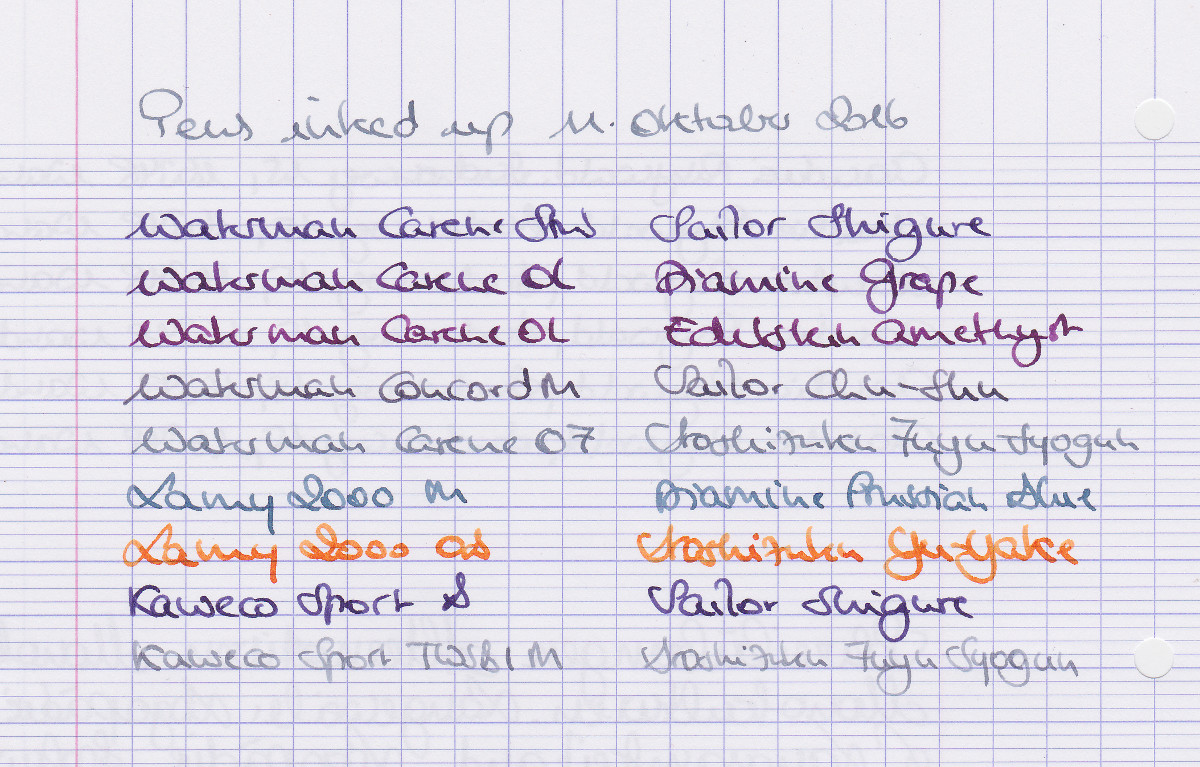 Pens inked up 11. Oktober 2016
Waterman Carene Stub Sailor Shigure
Waterman Carene OL Diamine Grape
Waterman Carene OL Edelstein Amethyst
Waterman Concord M Sailor Chu-Shu
Waterman Carene Iroshizuku Fuyu-Syogun
Lamy 2000 M Diamine Prussian Blue
Lamy 2000 Iroshizuku Yu-Yake
Kaweco Sport Sailor Shigure
Kaweco Sport TWSBI M Iroshizuku Fuyu Syogun